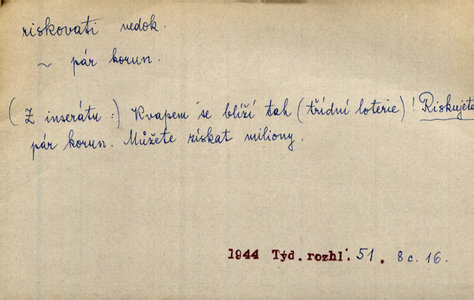 riskovati nedok.
~ pár korun.
(Z inserátu:) Kvapem se blíží tah (třídní loterie)! Riskujete
pár korun. Můžete získat miliony.
1944 Týd. rozhl. 51. 8 c. 16.